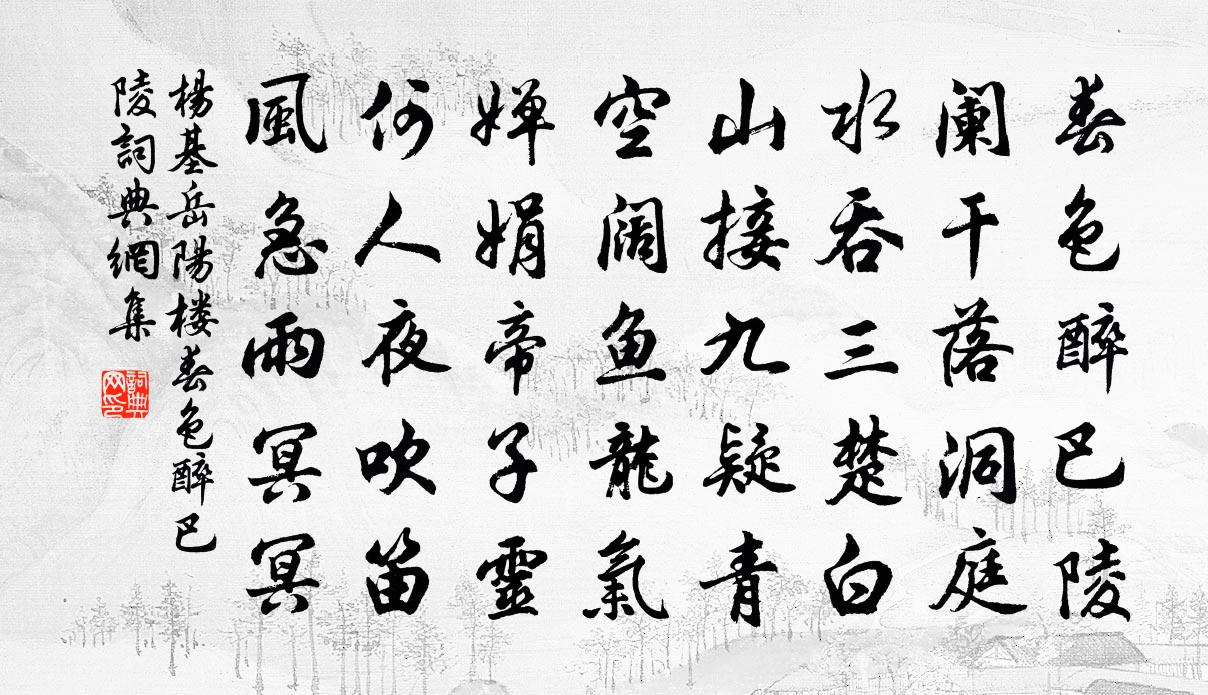 春色醉巴陵
阑干落洞庭
水吞三楚白
山接九疑青
空阔鱼龍氣
婵娟帝子靈
何人夜吹笛
風急雨冥冥
楊基岳陽楼春色醉巴
陵詞典網集
詞典
网印